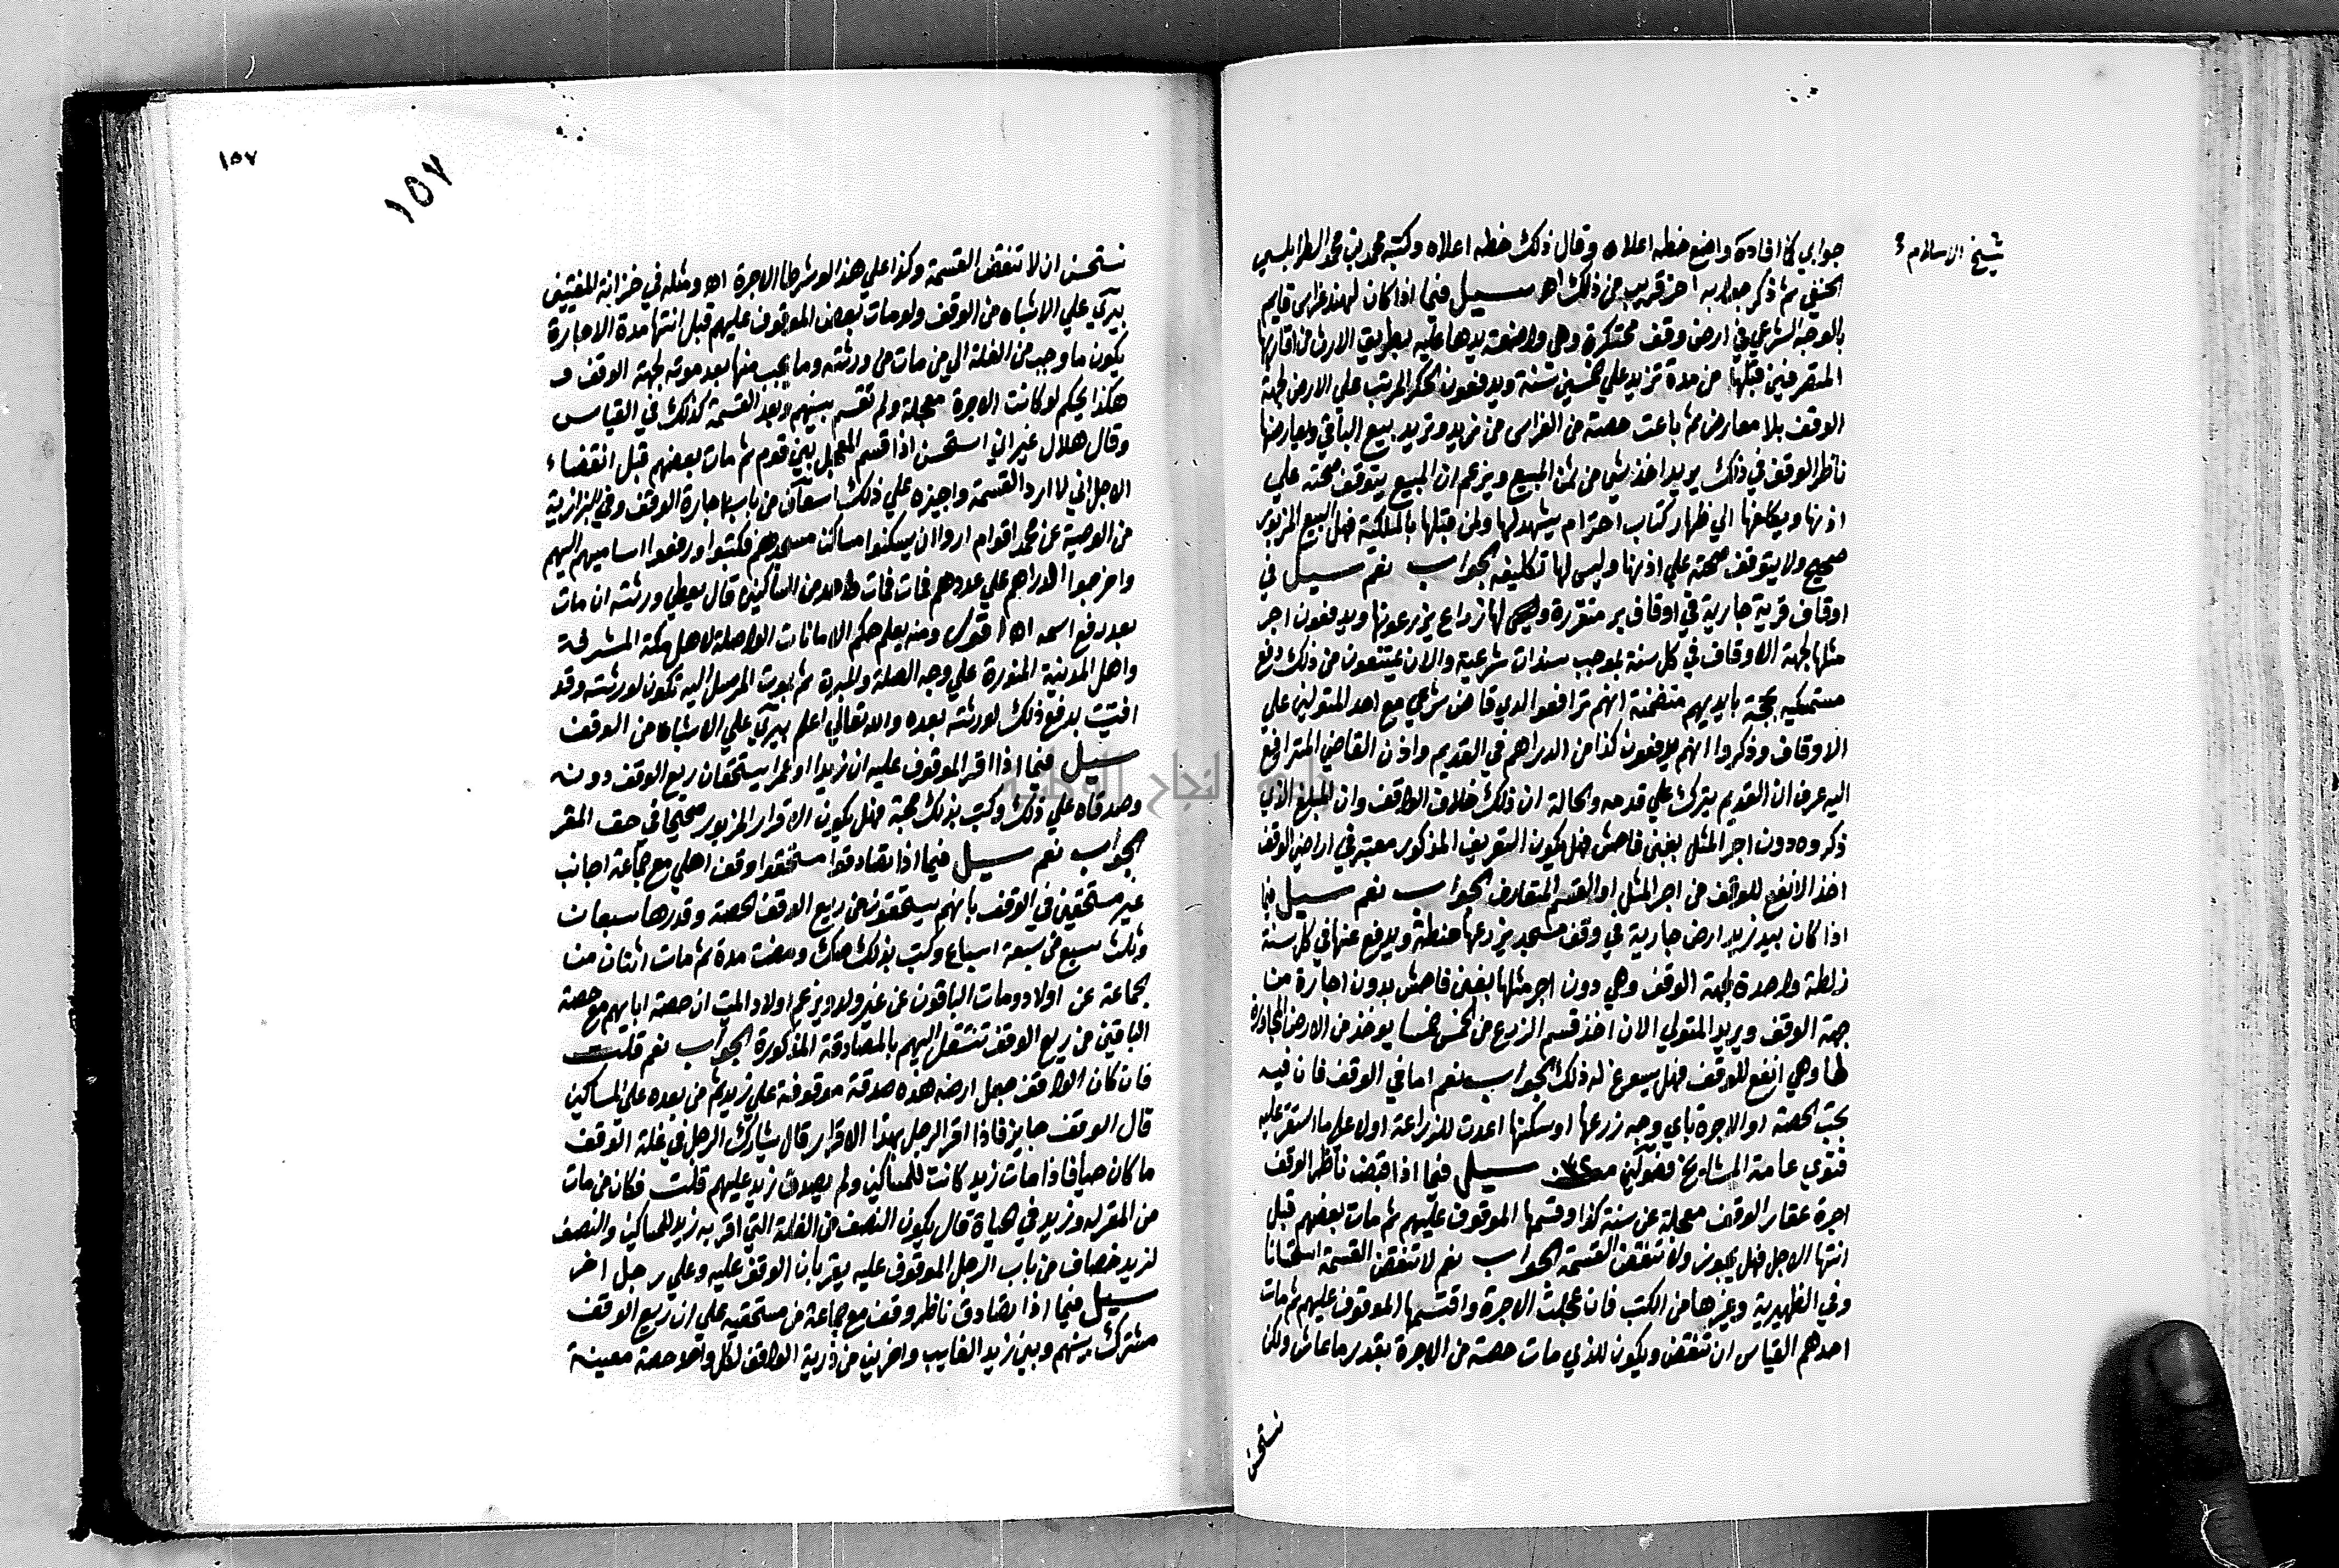 شيخ الاسلام
جوابي كما افاده واضع خطه اعلاه وقال ذلك خطه اعلاه وكتبه محمد بن محمد الطرابلسي
الحنفي ثم ذكر جوابه اخر قريب من ذلك اهـ سيل فيما اذا كان لهند غراس قايم
بالوجه الشرعي في ارض وقف محتكرة وهي واضعة يدها عليه بطريق الارث من اقاربها
المتصرفين قبلها من مدة تزيد علي خمسين سنة ويدفعون الحكر المرتب علي الارض لجهة
الوقف بلا معارض ثم باعت حصة من الغراس من زيد وتريد بيع الباقي ويعارضها
ناظر الوقف في ذلك يريد اخذ شي من ثمن المبيع ويزعم ان المبيع يتوقف صحته علي
اذنها ويكلفها الي اظهار كتاب احترام يشهد لها ولمن قبلها بالملكية فهل البيع المزبور
صحيح ولا يتوقف صحته علي اذنها وليس لها تكليفه الجواب نعم سيل في
اوقاف قرية جارية في اوقاف بر متقررة ولها زراع يزرعونها ويدفعون اجر
مثلها لجهة الاوقاف في كل سنة بموجب سندات شرعية والان يمتنعون من ذلك دفع
متمسكين بحجة بايديهم متضمنة انهم ترافعوا لدي قاض شرعي مع احد المتولين علي
الاوقاف وذكروا انهم يدفعون كذا من الدراهم في القديم واذن القاضي المترافع
اليه عرف ان القديم يترك علي قدمه والحالة ان ذلك خلاف الواقف وان المبلغ الذي
ذكروه دون اجر المثل بغبن فاحش فهل يكون التعريف المذكور معتبر في اراضي الوقف
اخذ الانفع للوقف من اجر المثل او القسم المتعارف الجواب نعم سيل فيما
اذا كان بيد زيد ارض جارية في وقف مسجد يزرعها حنطة ويدفع عنها في كل سنة
زلطة واحدة لجهة الوقف وهي دون اجر مثلها بغبن فاحش بدون اجارة من
جهة الوقف ويريد المتولي الان اخذ قسم الزرع من الخمس خمسا يوخذ من الارض المجاورة
لها وهي انفع للوقف فهل يسوغ له ذلك الجواب نعم اما في الوقف فان فيه
يجب الحصة او الاجرة باي وجه زرعها او سكنها اعدت للزراعة اولا علي ما استقر عليه
فتوي عامة المشايخ فصولين سيل فيما اذا قبض ناظر الوقف
اجرة عقار الوقف معجلة عن سنة كذا وقسمها الموقوف عليهم ثم مات بعضهم قبل
انتها الاجل فهل يجوز ولا تنقض القسمة الجواب نعم لا تنقض القسمة استحسانا
وفي الظهيرية وغيرها من الكتب فان عجلت الاجرة واقتسمها الموقوف عليهم ثم مات
احدهم القياس ان تنقض ويكون للذي مات حصة من الاجرة بقدر ما عاش ولكن
نستحسن
١٥٧
١٥٧
نستحسن ان لا تنقض القسمة وكذا علي هذا لو شرطا الاجرة اهـ ومثله في خزانة المفتيين
بيري علي الاشباه من الوقف ولو مات بعض الموقوف عليهم قبل انتها مدة الاجارة
يكون ما وجب من الغلة الي من مات من ورثته وما يجب منها بعد موته لجهة الوقف و
هكذا يحكم لو كانت الاجرة معجلة ولم تقسم بينهم وبعد القسمة كذلك في القياس
وقال هلال غير اني استحسن اذا قسم المعجل بين قوم ثم مات بعضهم قبل انقضاء
الاجل اني لا ارد القسمة واجيزه علي ذلك اسعاف من باب اجارة الوقف وفي البزازية
من الوصية عن محمد اقوام اروا ان يسكنوا مساكن مسجدهم فكتبوا ورفعوا اساميهم اليهم
واخرجوا الدراهم علي عددهم فمات واحد من الساكنين قال يعطي ورثته ان مات
بعد رفع اسمه اهـ اقول ومنه يعلم حكم الامانات الواصلة لاهل مكة المشرفة
واهل المدينة المنورة علي وجه الصلة والمبرة ثم يموت المرسل اليه تكون لورثته وقد
افتيت بدفع ذلك لورثته بعده والله تعالي اعلم بيري علي الاشباه من الوقف
سيل فيما اذا اقر الموقوف عليه ان زيدا او عمرا يستحقان ريع الوقف دونه
وصدقاه علي ذلك وكتب بذلك حجة فهل يكون الاقرار المزبور صحيحا في حق المقر
الجواب نعم سيل فيما اذا تصادقوا مستحقوا وقف اهلي مع جماعة اجانب
غير مستحقين في الوقف بانهم يستحقون من ريع الوقف الحصة وقدرها سبعان
وثلث سبع من سبعة اسباع وكتب بذلك صك ومضت مدة ثم مات اثنان من
الجماعة عن اولاد ومات الباقون عن غير ولد ويزعم اولاد الميت ان حصة ابايهم مع حصة
الباقين من ريع الوقف تنتقل اليهم بالمصادقة المذكورة الجواب نعم قلت
فان كان الواقف جعل ارضه هذه صدقة موقوفة علي زيد ثم من بعده علي المساكين
قال الوقف جايز فاذا اقر الرجل بهذا الاقرار قال يشارك الرجل في غلة الوقف
ما كان حيا فاذا مات زيد كانت للمساكين ولم يصدق زيد عليهم قلت فكان من مات
من المقر له وزيد في حياة قال يكون النصف من الغلة التي اقر به زيد للمساكين والنصف
لزيد خصاف من باب الرجل الموقوف عليه يقر بان الوقف عليه وعلي رجل اخر
سيل فيما اذا تصادق ناظر وقف مع جماعة من مستحقيه علي ان ريع الوقف
مشترك بينهم وبين زيد الغايب واخرين من ذرية الواقف لكل واحد حصة معينة